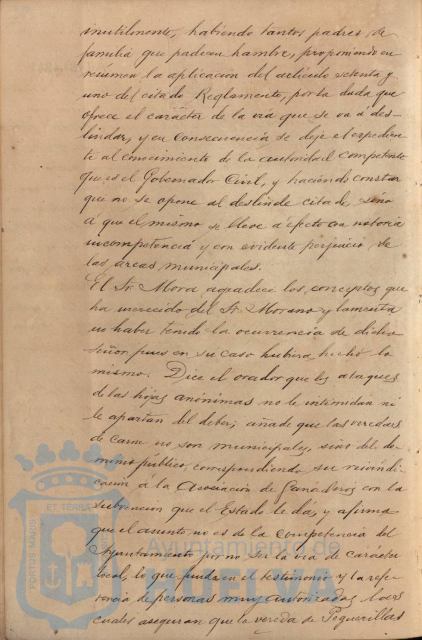 inutilmente, habiendo tantos padres de
familia que padecen hambre, proponiendo en
resúmen la aplicacion del artículo setenta y
uno del citado Reglamento, por la duda que
ofrece el carácter de la via que se va á des-
lindar, y en consecuencia se deje el expedien-
te al conocimiento de la autoridad competente
que es el Gobernador Civil, y haciendo constar
que no se opone al deslinde citado, sino
á que el mismo se lleve á efecto con notoria
incompetencia y con evidente perjuicio de
las arcas municipales.
El Sr. Mora agradece los conceptos que
ha merecido del Sr. Moreno y lamenta
no haber tenido la ocurrencia de dicho
señor pues en su caso hubiera hecho lo
mismo. Dice el orador que los ataques
de las hojas anónimas no le intimidan ni
le apartan del deber; añade que las veredas
de carne no son municipales, sino del do-
minio público, correspondiendo su reivindi-
cacion á la Asociación de Ganaderos con la
subvencion que el Estado le da, y afirma
que el asunto no es de la competencia del
Ayuntamiento por no ser la via de carácter
local, lo que funda en el testimonio y la refe-
rencia de personas muy autorizadas, las
cuales aseguran que la vereda de Peguerillas
PORTUS MARIS
ET TERRA
Ayuntamiento de